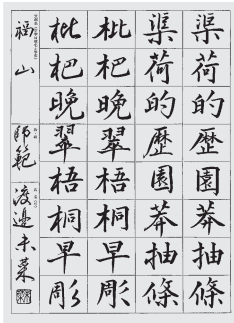 渠荷的歴園莽抽條
渠荷的歴園莽抽條
枇杷晩翠梧桐早彫
枇杷晩翠梧桐早彫
福山
師範
渡邉未菜